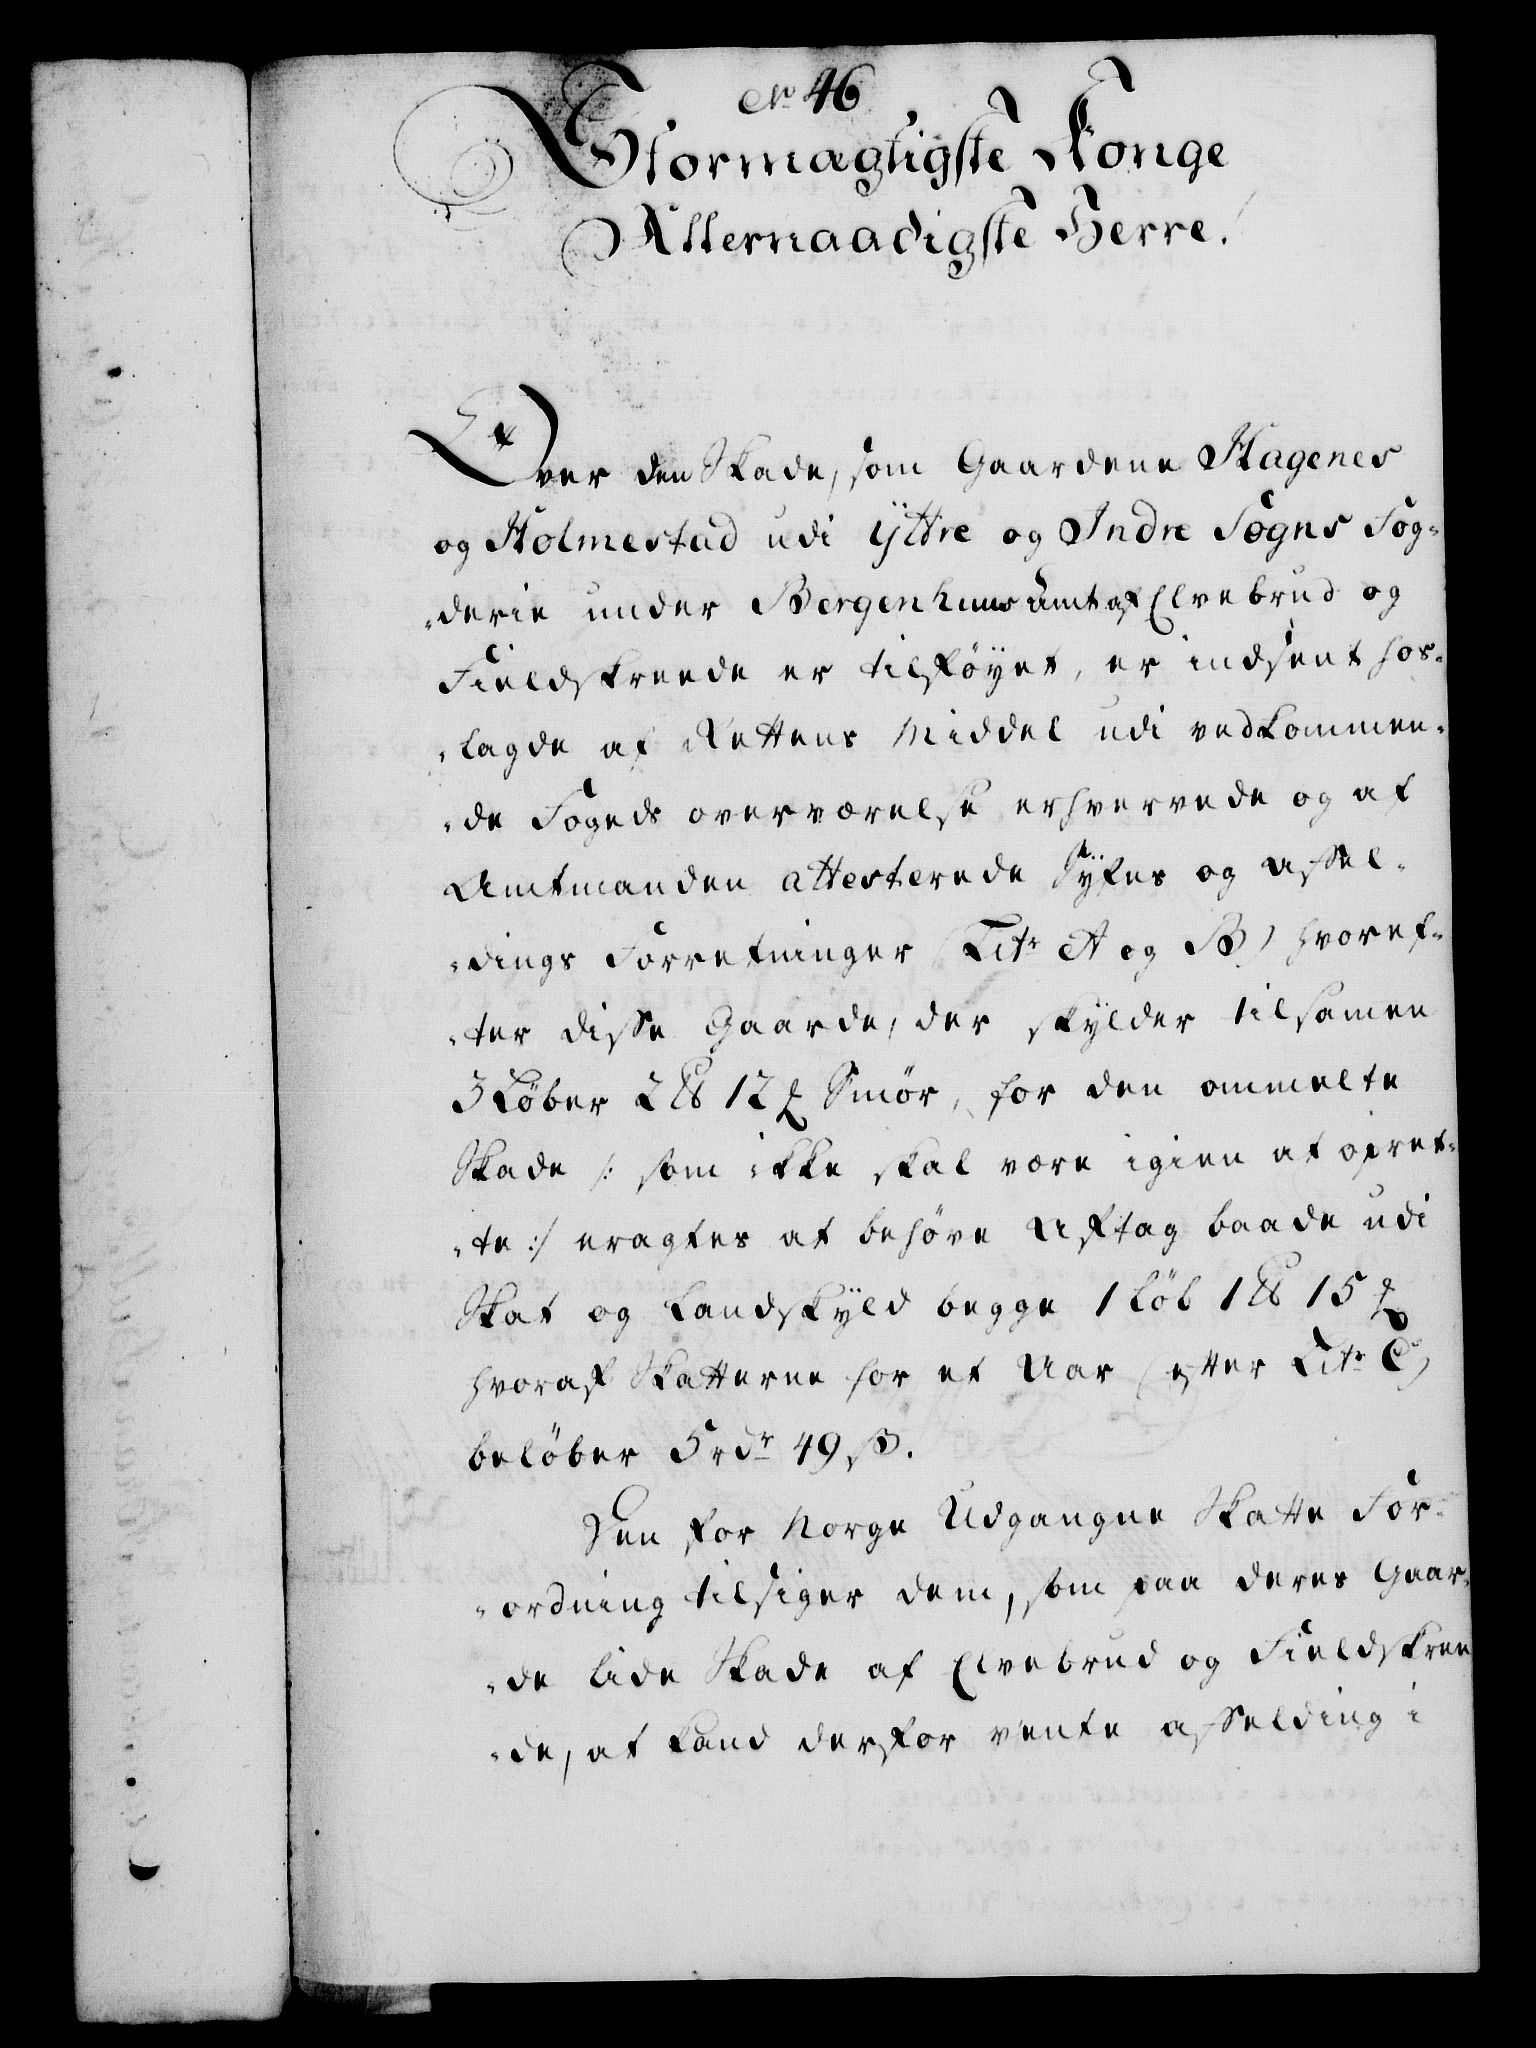 No 46
Stormægtigste Konge
Allernaadigste Herre!
Over den Skade, som Gaardene Hagenes
og Holmestad udi Yttre og Indre Sogns Fog-
„derie under Bergenhuus Amt af Elvebrud og
Fieldskreede er tilføyet, er indsent hos-
„lagde af Rettens Middel udi vedkommen-
„de Fogeds overværelse erhvervede og af
Amtmanden attesterede Syfns og affel-
„dings Forretninger (Litr A og B) hvoref-
„ter disse Gaarde, der skylder tilsamen
3 Løber 2 Pd 12 ℔ Smør, for den ommelte
Skade /: som ikke skal være igien at opret-
„te :/ eragtes at behøve Aftag baade udi
Skat og Landskyld begge 1 Løb 1 Pd 15 ℔
hvoraf Skatterne for et Aar (efter Litr C)
beløber 5 rdr 49 ß.
Den for Norge Udgangne Skatte For-
„ordning tilsiger dem, som paa deres Gaar-
„de lide Skade af Elvebrud og Fieldskree
„de, at kand derfor vente affelding i